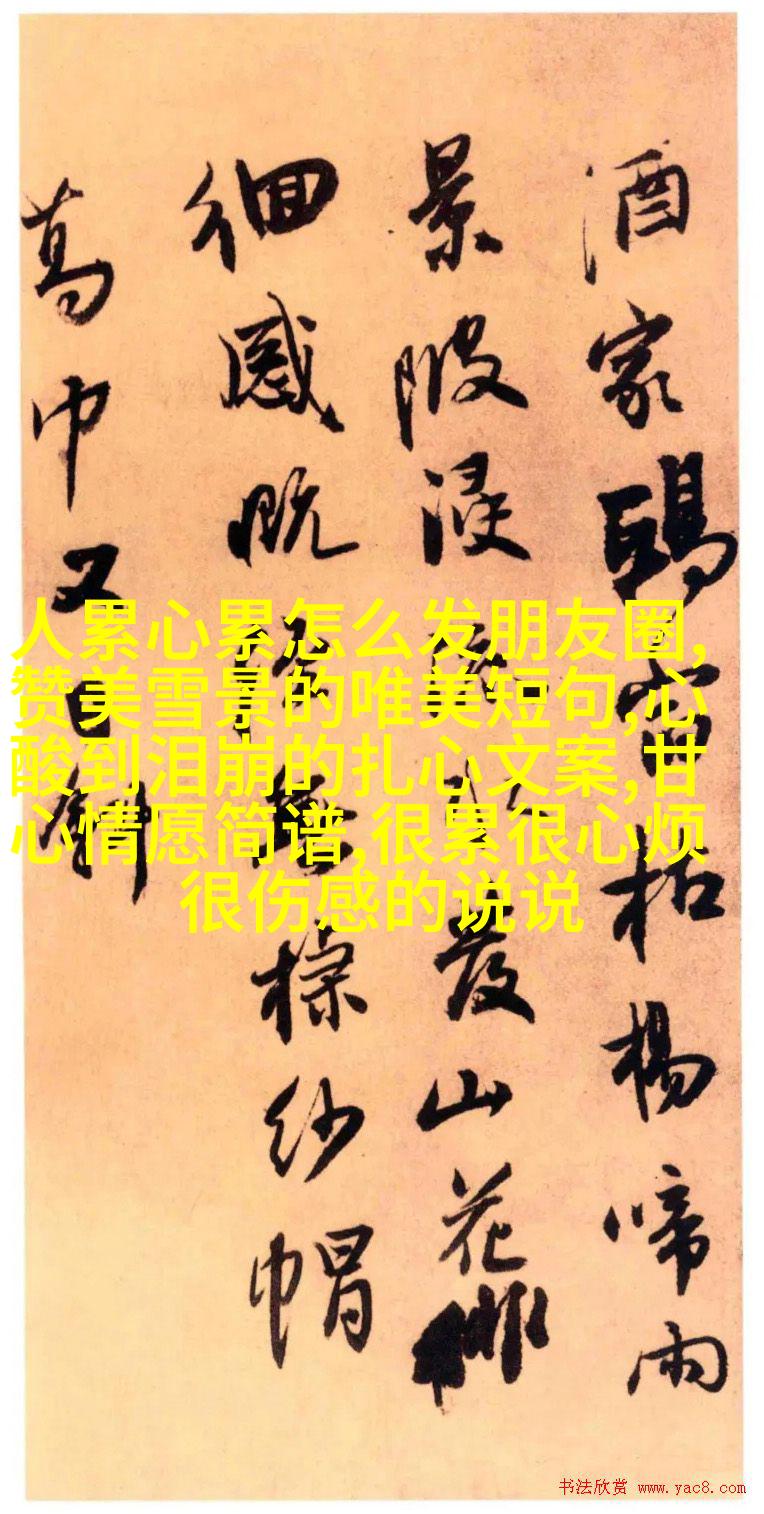 酒家鷗宿枯楊啼雨
景陂浸發山花
徊感既棕纱帽
葛巾又日斜
人累心累怎么发朋友圈,
赞美雪景的唯美短句,心
酸到泪崩的扎心文案,甘
心情愿简谱,很累很心烦
很伤感的说说
书法欣赏 www.yac8.com